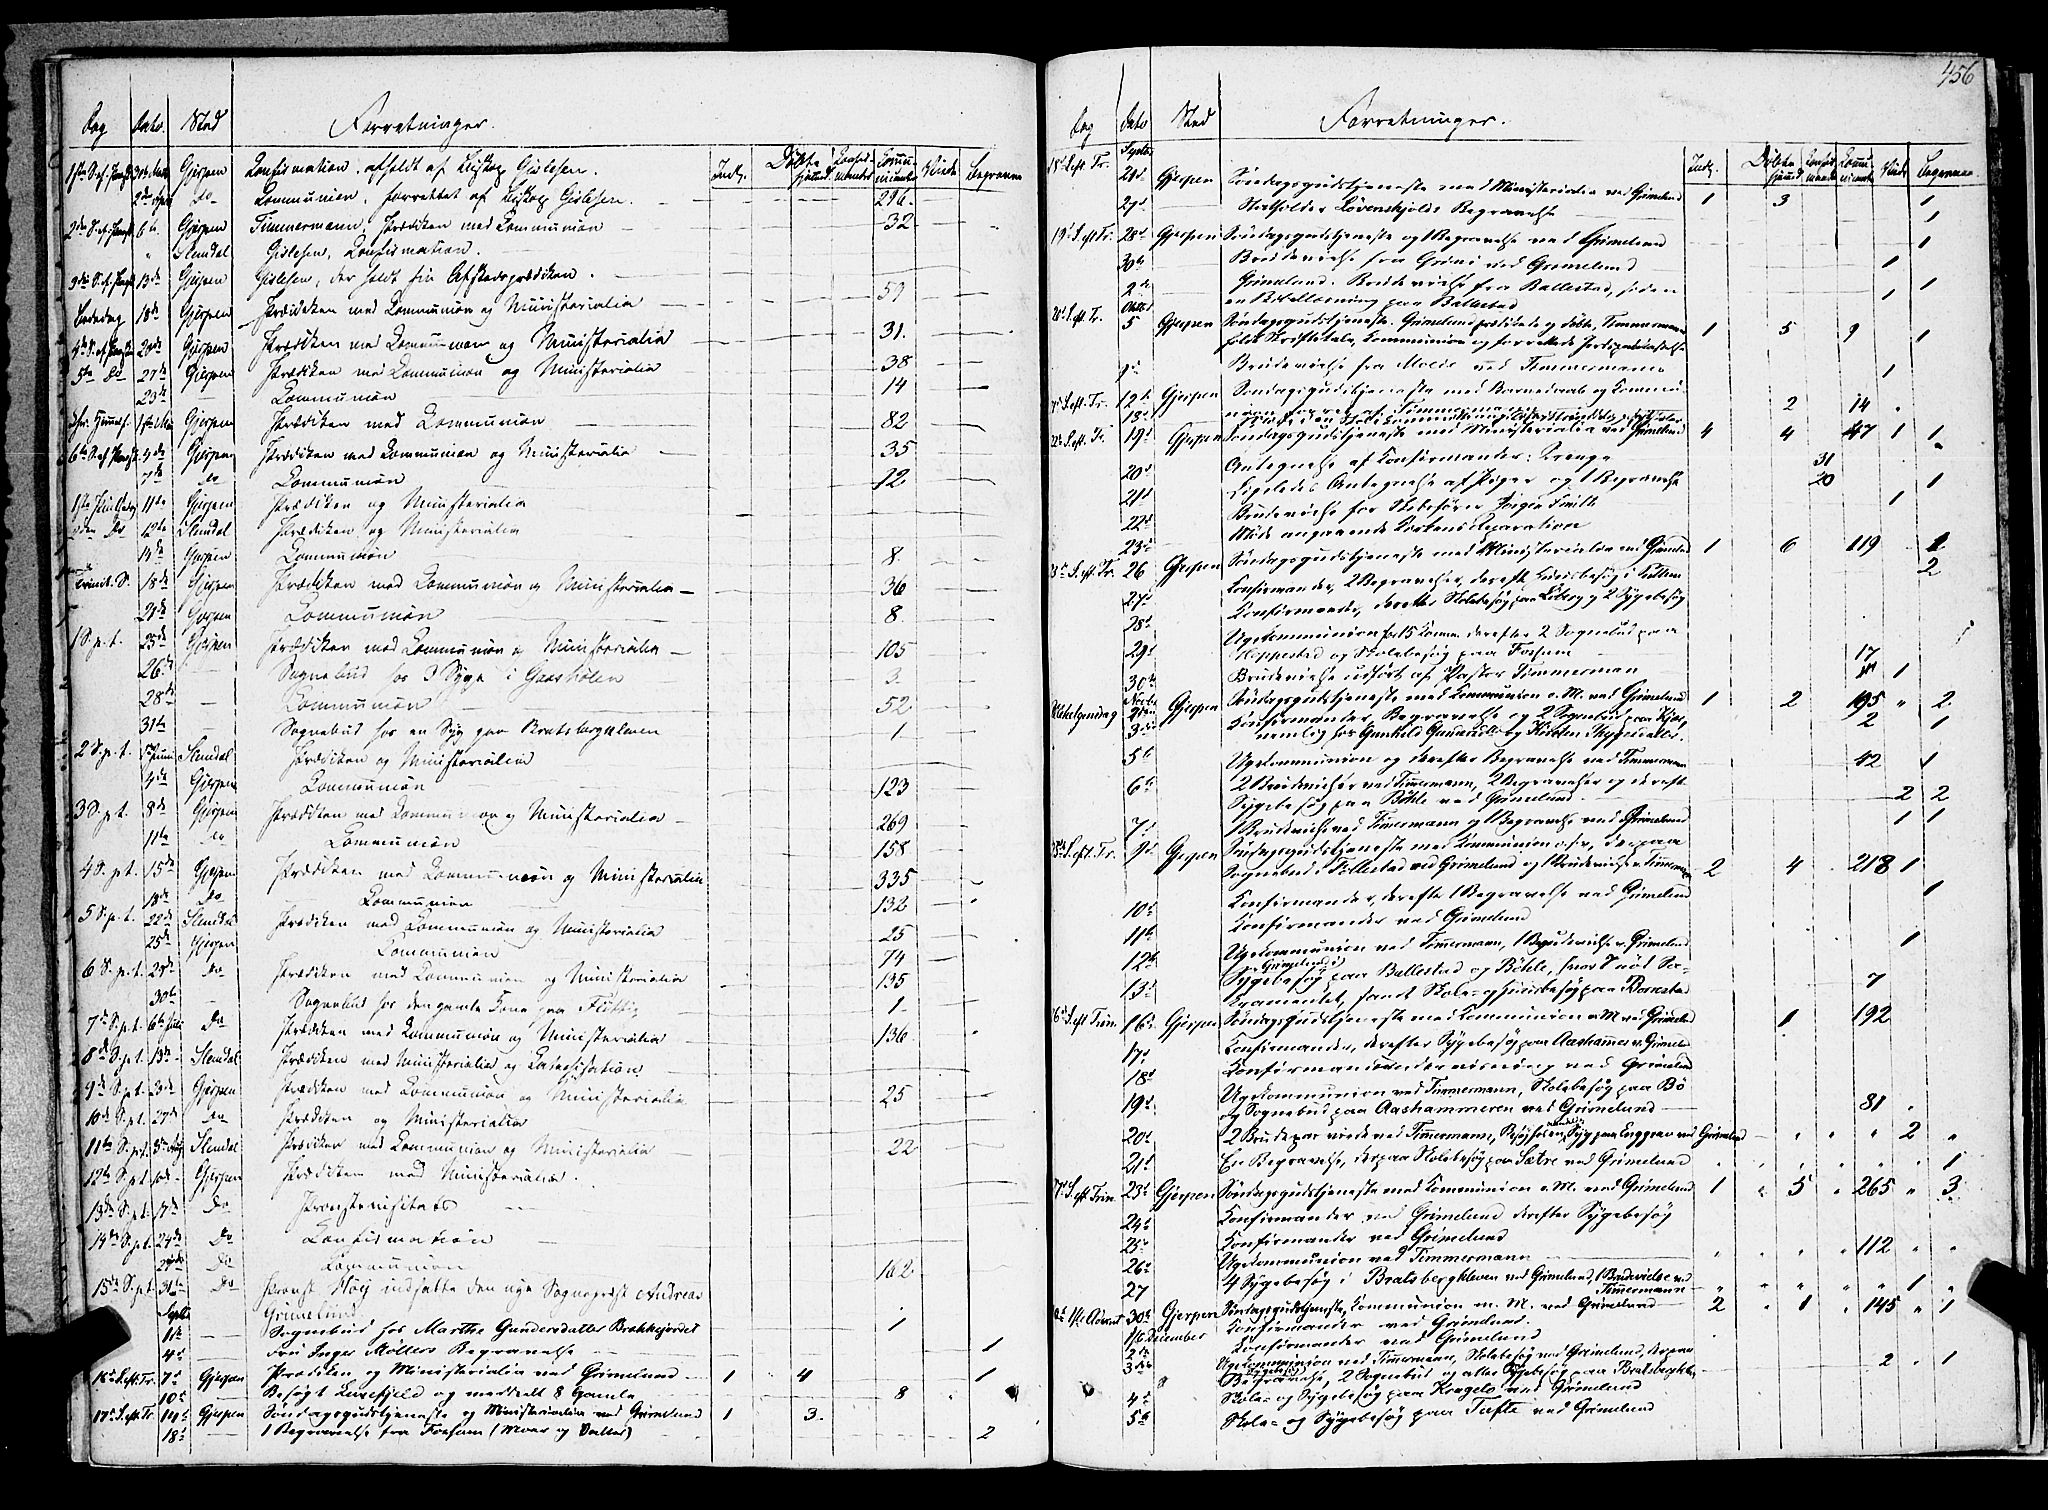 456
Dag Dato Sted Forretninger.
Indg. Døbte hjemd. Konfirmander Communicanter Viede Begravne
1ste S. ef. Paaske 30te Gjerpen Konfirmation, afholdt af Biskop Gislesen.
2den April Do Kommunion, forrettet af Biskop Gislesen. 296.
2den S. ef. Paaske 6te Gjerpen Timmermann, Prædiken med Communion 32
Slemdal Gislesen, Konfirmation.
3die S. ef. Paaske 13de Gjerpen Gislesen, der holdt sin Afskedsprædiken.
Bededag 18de Gjerpen Prædiken med Communion og Ministerialia 59
4de S. ef. Paaske 20de Gjerpen Prædiken med Communion og Ministerialia 31.
5te Do 27de Gjerpen Prædiken med Communion og Ministerialia 38
29de Communion 14
1ste Mai Gjerpen Prædiken med Communion 82
6te S. ef. Paaske 4de Gjerpen Prædiken med Communion og Ministerialia 35
7de Do Communion 12
1ste 11te Gjerpen Prædiken og Ministerialia
2den Do 12te Slemdal Prædiken og Ministerialia
14de Gjerpen Communion 8.
Trinit. S. 18de Gjerpen Prædiken med Communion og Ministerialia 36
21de Gjerpen Communion 8.
1 S. p. t. 25de Gjerpen Prædiken med Communion og Ministerialia 105
26de Sognebud hos 3 Syge i Gaasholen 3.
28de Communion 52
31te Sognebud hos en Syg paa Bratsbergkleven 1
2 S. p. t. 1ste Juni Slemdal Prædiken og Ministerialia
4de Gjerpen Communion 123
3 S. p. t. 8de Gjerpen Prædiken med Communion og Ministerialia 269
11te Do Communion 158
4 S. p. t. 15de Gjerpen Prædiken med Communion og Ministerialia 335
18de Do Communion 132
5 S. p. t. 22de Slemdal Prædiken med Communion og Ministerialia 25
25de Gjerpen Communion 74
6 S. p. t. 29de Do Prædiken med Communion og Ministerialia 135
30te Sognebud hos den gamle Kone paa 1.
7de S. p. t. 6te Juli Do Prædiken med Communion og Ministerialia 136
8de S. p. t. 13de Slemdal Prædiken med Ministerialia og Katechisation
9de S. p. t. 20de Gjerpen Prædiken med Communion og Ministerialia 25
10de S. p. t. 27de Do Prædiken og Ministerialia
11te S. p. t. 3die Aug Slemdal Prædiken med Communion og Ministerialia 22
12te S. p. t. 10de Gjerpen Prædiken med Ministerialia.
13de S. p. t. 17de Do Provstevisitats
14de S. p. t. 24de Do Confirmation
Do Communion 162
15de S. p. t. 31te Do Provst Høij indsatte den nye Sognepræst Andreas
Grimelund
Septbr
1te Sognebud hos Marthe Gundersdatter Brekkejordet 1
4de Fru Inger Møllers Begravelse 1
16de S. eft. Tr. 7de Gjerpen Prædiken og Ministerialia ved Grimelund 1 4 1
10de Besøgt Luxefjeld og meddelt 8 Gamle 8
17de S. eft. Tr. 14de Gjerpen Søndagsgudstjeneste og Ministerialia ved Grimelund 1 3.
18de 1 Begravelse fra Fossum (Moer og Datter) 2
Dag Dato Sted Forretninger.
Indg. Døbte hjemd Konfirmande Communicante Viede Begravne
18de S. eft. Tr. Septbr 21de Gjerpen Søndagsgudstjeneste med Ministerialia ved Grimelund 1 3 1
27de Statholder Løvenskjolds Begravelse 1
19de S. eft. Tr. 28de Gjerpen Søndagsgudstjeneste og 1 Begravelse ved Grimelund 1
30te Brudevielse fra Grini ved Grimelund 1
2den Grimelund. Brudevielse fra Ballestad, siden
en Ballestad 1 1
20de S. eft. Tr. Oktobr 5 Gjerpen Søndagsgudstjeneste. Grimelund prædikede og døbte, Timmermann
holdt Skriftetale, Kommunion og forrettede Jordspaakastelse 1 5 9 1
9de Brudevielse fra Molde ved Timmermann 1
21de S. eft. Tr. 12te Gjerpen Søndagsgudstjeneste med Barnedaab og Kommu-
nion ved Timmermann 2 14
18de
22de S. eft. Tr. 19de Gjerpen Søndagsgudstjeneste med Ministerialia ved Grimelund 4 4 47 1 1
20de Antegnelse af Konfirmander: Drenge 31
21de Ligeledes Antegnelse af Piger og 1 Begravelse 20 1
22de Brudevielse for Skibsfører Jørgen Smith 1
23de Møde angaaende Kirkens Reparation
23de S. eft. Tr. 26 Gjerpen Søndagsgudstjeneste med Ministerialia ved Grimelund 1 6 119 1
27de Konfirmander, 2 Begravelser, derefter Huusbesøg i 2
28de Konfirmander, derefter Skolebesøg paa Liberg og 2 Sygebesøg
29de Ugekommunion for 15 Komm. derefter 2 Sognebud paa
Hoppestad og Skolebesøg paa Fossum 17
30te Brudevielse udført af Pastor Timmerman 1
Allehelgensdag Novbr 2den Gjerpen Søndagsgudstjeneste med Kommunion o. M. ved Grimelund 1 2 195 2
3die Konfirmander, Begravelse og 2 Sognebud paa
nemlig hos Gunhild Gunnarsd. og Kirsten 2 1
5te Ugekommunion og derefter Begravelse ved Timmermann 42 1
6te 2 Brudevielser ved Timmermann, 2 Begravelser og derefter
Sygebesøg paa Bøhle ved Grimelund. 2 2
7de 1 Brudevielse ved Timmermann og 1 Begravelse ved Grimelund 1 1
25de S. eft. Tr. 9de Gjerpen Søndagsgudstjeneste med Kommunion o. s. v., derpaa
Sognebud i Follestad ved Grimelund og 1 Brudevielse v. Timmermann 2 4 218 1
10de Konfirmander, derefter 1 Begravelse ved Grimelund 1
11te Konfirmander ved Grimelund
12te Ugekommunion ved Timmermann, 1 Brudevielse v. Grimelund 1
13de Sygebesøg paa Ballestad og Bøhle, hvor 7 nød Sa-
kramentet, samt Skole- og Huusbesøg paa Bornstad 7
26de S. eft. Trin. 16de Gjerpen Søndagsgudstjeneste med Kommunion o. M. ved Grimelund 1 192
17de Konfirmander, derefter Sygebesøg paa Aashammer v. Grimelund
18de Konfirmandundervisning ved Grimelund
19de Ugekommunion ved Timmermann, Skolebesøg paa Bø
og Sognebud paa Aashammeren ved Grimelund 81
20de 2 Brudepar viede ved Timmermann, Besøg hos en Syg paa Enggrav ved Grimelund 2
21de En Begravelse, derpaa Skolebesøg paa Sætre ved Grimelund 1
27de S. eft. Trin. 23de Gjerpen Søndagsgudstjeneste med Kommunion o. M. ved Grimelund 1 5 265 3
24de Konfirmander ved Grimelund derefter Sygebesøg
25de Konfirmander ved Grimelund
26de Ugekommunion ved Timmermann 112
27 4 Sygebesøg i Bratsbergkleven ved Grimelund, 1 Brudevielse ved
Timmermann 1
1ste Advent 30te Gjerpen Søndagsgudstjeneste, Kommunion o. M. ved Grimelund 2 1 145 1
1ste December Konfirmander ved Grimelund.
2den Konfirmander ved Grimelund
3die Ugekommunion ved Timmermann, Skolebesøg ved Grimelund, derpaa
Begravelse, 2 Sognebud og alles Sygebesøg paa Bratsbergkleven 2 1
4de Skole- og Sygebesøg paa Kragelv ved Grimelund
5te Skole- og Sygebesøg paa Tufte ved Grimelund